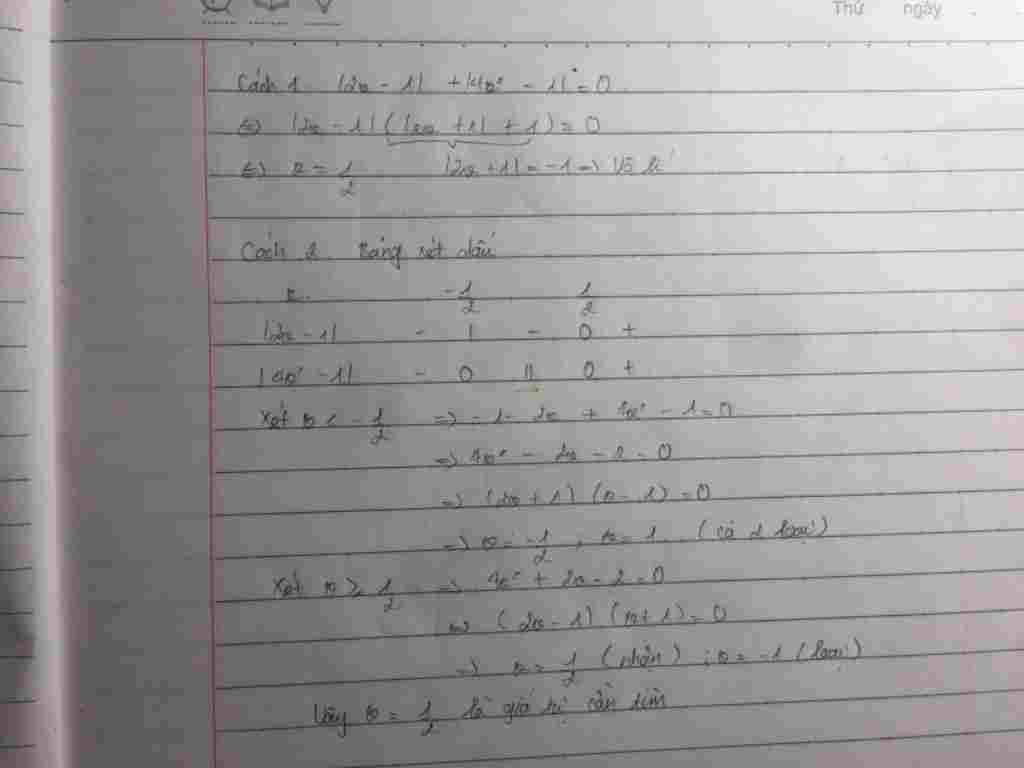 Thứ ngày
Cách 1. |2x - 1| + |4x² - 1| = 0
⇔ |2x - 1| (|2x + 1| + 1) = 0
⇔ x = 1/2 |2x + 1| = -1 ⇒ Vô lí
Cách 2. Bảng xét dấu
x -1/2 1/2
|2x - 1| - | - 0 +
|4x² - 1| - 0 || 0 +
Xét x < -1/2 ⇒ - 1 - 2x + 4x² - 1 = 0
⇒ 4x² - 2x - 2 = 0
⇒ (2x + 1) (x - 1) = 0
⇒ x = -1/2 ; x = 1 (cả 2 loại)
Xét x ≥ 1/2 ⇒ 4x² + 2x - 2 = 0
⇒ (2x - 1) (x + 1) = 0
⇒ x = 1/2 (nhận) ; x = -1 (loại)
Vậy x = 1/2 là giá trị cần tìm